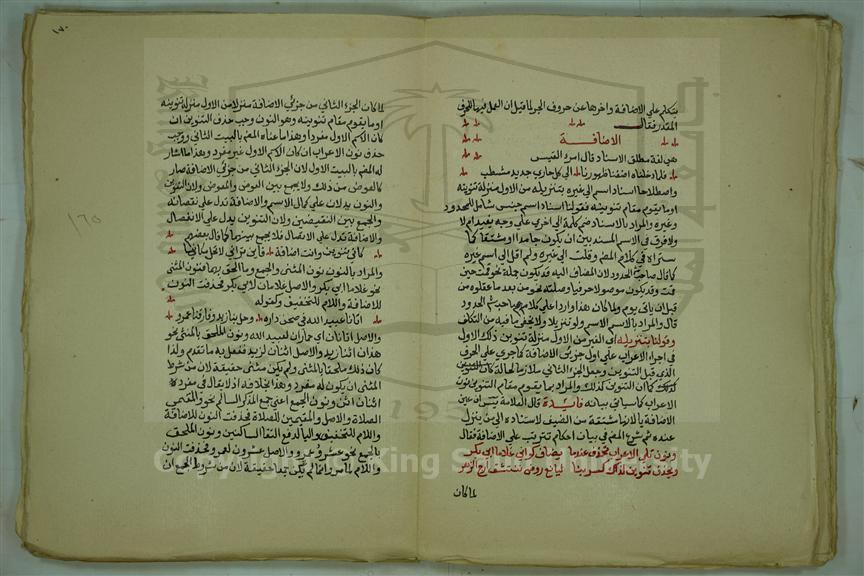 يتكلم على الاضافة واخرها عن حروف الجر لما قيل ان العمل فيها للحرف
المقدر فقال
الاضافة
هي لغة مطلق الاسناد قال امرؤ القيس
فلما دخلناه اضفنا ظهورنا الى كل حاري جديد مشطب
واصطلاحا اسناد اسم الى غيره بتنزيله من الاول منزلة تنوينه
او ما يقوم مقام تنوينه فقولنا اسناد اسم جنس شامل للمحدود
وغيره والمراد بالاسناد ضم كلمة الى اخرى على وجه يفيد ام لا
ولا فرق في الاسم المسند بين ان يكون جامدا او مشتقا كما
ستراه في كلام المص وقلت الى غيره ولم اقل الى اسم غيره
كما قال صاحب الحدود لان المضاف اليه قد يكون جملة نحو قمت حين
قمت وقد يكون موصولا حرفيا وصلته نحو من بعد ما عقلوه من
قبل ان ياتي يوم ولما كان هذا واردا على كلام صاحب الحدود
قال والمراد بالاسم الاسم ولو تنزيلا ولا يخفى ما فيه من التكلف
وقولنا بتنزيله اي الغير من الاول منزلة تنوين ذلك الاول
في اجراء الاعراب على اول جزئي الاضافة كما جرى على الحرف
الذي قبل التنوين وجعل الجزء الثاني ملازما لحالة
كما ان التنوين كذلك والمراد بما يقوم مقام التنوين نون
الاعراب كما سياتي بيانه فائدة قال العلامة
الاضافة بالالف مشتقة من الضيف لاستناده الى من ينزل
عنده ثم شرع المص في بيان احكام تترتب على الاضافة فقال
ونون تلي الاعراب تحذف عندما يضاف كراني غلاما ابي بكر
ويحذف تنوين لذلك
لما كان
١٧٠
لما كان الجزء الثاني من جزئي الاضافة منزلا من الاول منزلة تنوينه
او ما يقوم مقام تنوينه وهو النون وجب حذف التنوين ان
كان الاسم الاول مفردا وهذا ما عناه المص بالبيت الثاني ووجب
حذف نون الاعراب ان كان الاسم الاول غير مفرد وبهذا اشار
له المص بالبيت الاول لان الجزء الثاني من جزئي الاضافة صار
كالعوض من ذلك ولا يجمع بين العوض والمعوض ولان التنوين
والنون يدلان على كمال الاسم والاضافة تدل على نقصانه
والجمع بين النقيضين ولان التنوين يدل على الانفصال
والاضافة تدل على الاتصال فلا يجمع بينهما كما قال بعضهم
كاني تنوين وانت اضافة فاين تراني لا تحل مكانيا
والمراد بالنون نون المثنى والجمع وما الحق بهما فنون المثنى
نحو غلاما ابي بكر والاصل غلامان لابي بكر فحذفت النون
للاضافة واللام للتخفيف وكقوله
اتانا عبيد الله في صحن داره
والاصل اتانا اي جاران لعبيد الله ونون الملحق بالمثنى نحو
هذان اثنا زيد والاصل اثنان لزيد ففعل به ما تقدم ولذا
كان ذلك ملحقا بالمثنى ولم يكن مثنى حقيقة لان من شرط
المثنى ان يكون له مفرد وهذا بخلافه اذ لا يقال في مفرده
اثنان اثن ونون الجمع اعني جمع المذكر السالم نحو المقيمي
الصلاة والاصل والمقيمين للصلاة فحذفت النون للاضافة
واللام للتخفيف والياء لدفع التقا الساكنين ونون الملحق
بالجمع نحو عشرو عمرو والاصل عشرون لعمرو فحذفت النون
واللام لما مر وانما لم يكن جمعا حقيقة لان من شروط الجمع ان
١٦٥
Copyright © King Saud University
195